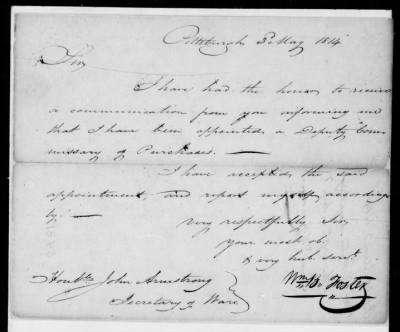 Pittsburgh 3d May 1814
Sir,
I have had the honour to receive
a communication from you informing me
that I have been appointed a Deputy Com
missary of Purchases. —
I have accepted the said
appointment, and report myself according
ly. —
very respectfully Sir,
your most ob.
& very hub servt.
Wm. B. Foster
Honble. John Armstrong
Secretary of Warr